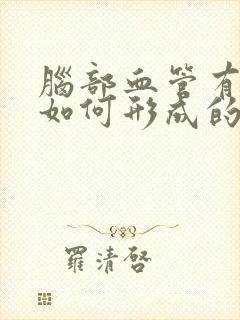 腦部血管有
如何形成的
羅清啓